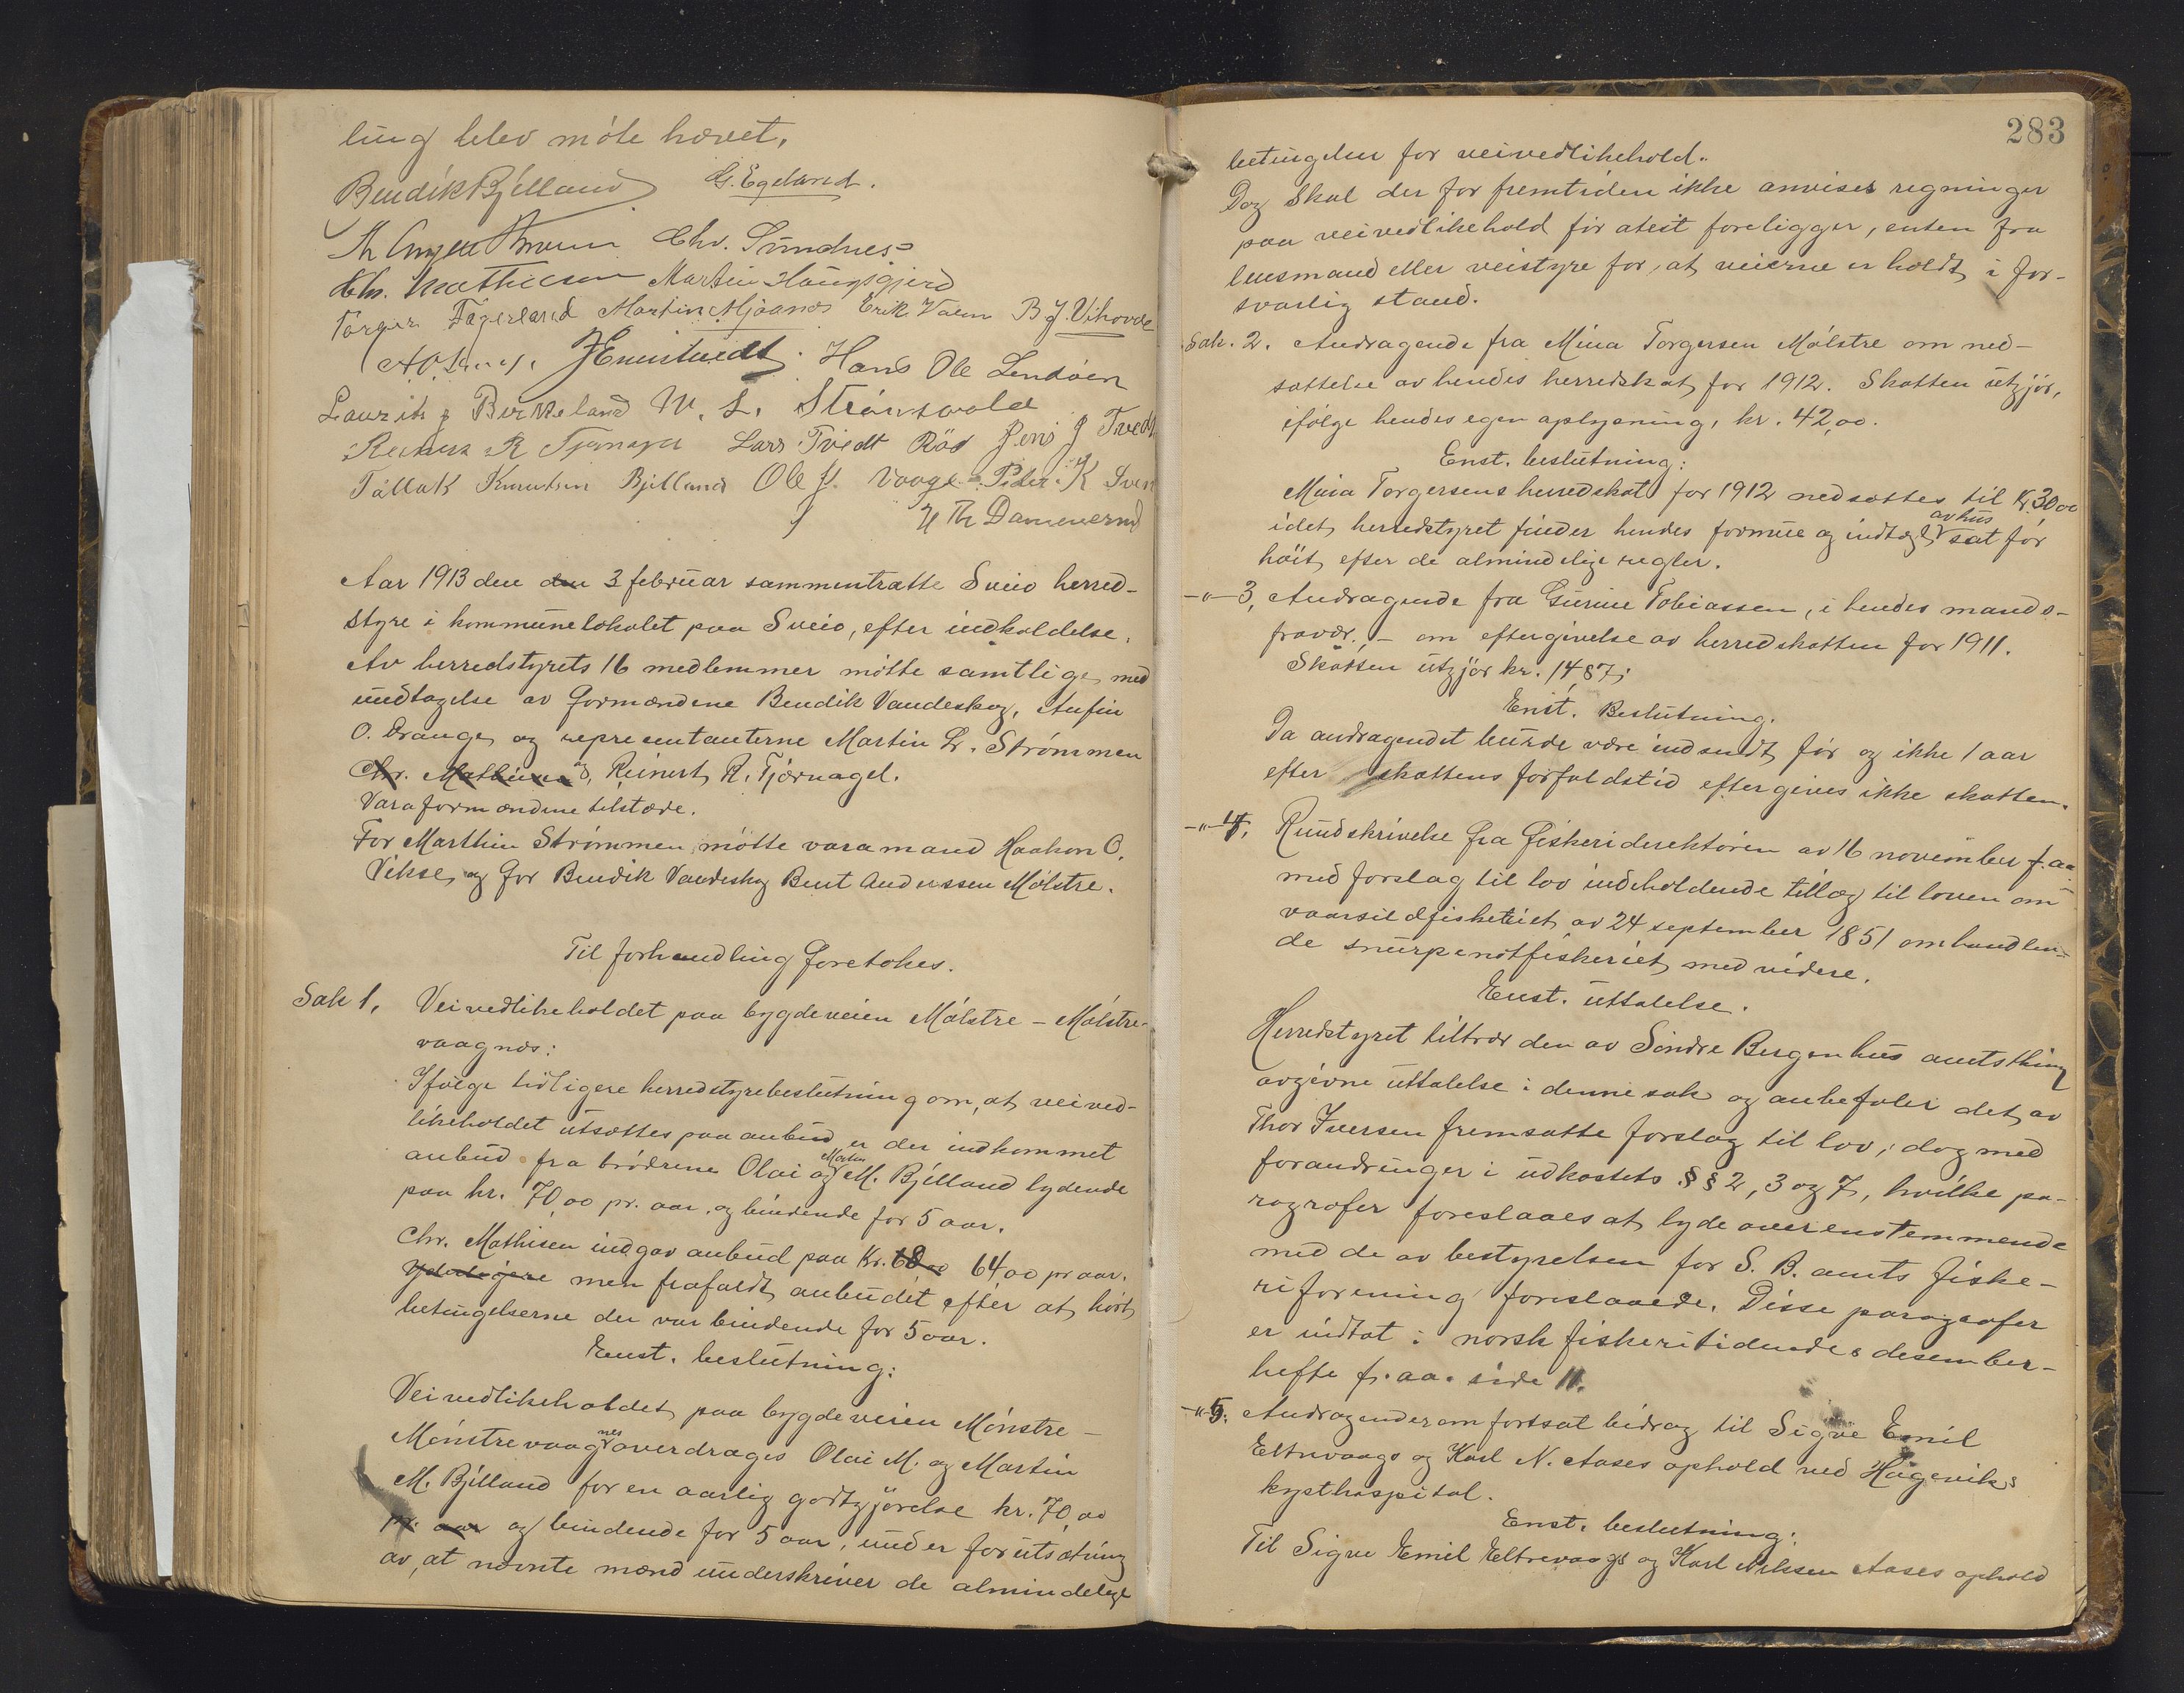 ling blev möte hævet.
Bendik Bjelland G. Egeland.
Chr. Sundnes
Chr. Mathiesen Martin Haugsgjerd
Torger Fagerland Martin Mjaanes Erik Valen B J. Vihovde
Hans Ole Lindöen
Lauritz J Birkeland M. L. Strömsvold
R Lars Tvedt Röd Jens J Tvedt
Tallak Knutsen Bjelland Ole J. Vaage Peder K Sven
Aar 1913 den den 3 februar sammentraatte Sveio herred-
styre i kommunelokalet paa Sveio, efter indkaldelse.
Av herredstyrets 16 medlemmer mötte samtlige med
undtagelse av formændene Bendik Vandeskog, Anfin
O. Drange og representanterne Martin Lr. Strömmen
Chr. Mathiesen og Reinert R. Tjernagel.
Varaformændene tilstæde.
For Marthin Strömmen mötte varamand Haakon O.
Vikse og for Bendik Vandeskog Bent Anderssen Mölstre.
Til forhandling foretokes.
Sak 1. Veivedlikeholdet paa bygdeveien Mölstre - Mölstre-
vaagnes:
Ifölge tidligere herredstyrebeslutning om, at veived-
likeholdet utsættes paa anbud er der indkommet
anbud fra brödrene Olai og Martin M. Bjelland lydende
paa kr. 70,00 pr. aar, og bindende for 5 aar.
Chr. Mathisen indgav anbud paa Kr. 68,00 64,00 pr aar.
Yderligere men frafaldt anbudet efter at hört
betingelserne der var bindende for 5 aar.
Enst. beslutning:
Veivedlikeholdet paa bygdeveien Mönstre -
Mönstrevaagnes overdrages Olai M. og Martin
M. Bjelland for en aarlig godtgjörelse kr. 70,00
pr. aar og bindende for 5 aar, under forutsætning
av, at nævnte mænd underskriver de almindelige
283
betingelser for veivedlikehold.
Dog skal der for fremtiden ikke anvises regninger
paa veivedlikehold för atest foreligger, enten fra
lensmand eller veistyre for, at veierne er holdt i for-
svarlig stand.
Sak. 2. Andragende fra Mina Torgersen Mölstre om ned-
sættelse av hendes herredskat for 1912. Skatten utgjör,
ifölge hendes egen oplysning, kr. 42,00.
Enst. beslutning:
Mina Torgersens herredskat for 1912 nedsættes til Kr 30,00
idet herredstyret finder hendes formue og indtægt av hus sat for
höit efter de almindelige regler.
-"- 3, Andragende fra Gurine Tobiassen, i hendes mands-
fravær, - om eftergivelse av herredskatten for 1911.
Skatten utgjör kr. 14,87.
Enst. Beslutning.
Da andragendet burde være indsendt för og ikke 1 aar
efter skattens forfaldstid eftergives ikke skatten.
-"- 4, Rundskrivelse fra fiskeridirektören av 16 november f. aa.
med forslag til lov indeholdende tillæg til loven om
vaarsildfisketeriet av 24 september 1851 omhandlen-
de snurpenotfiskeriet med videre.
Enst. uttalelse.
Herredstyret tiltrær den av Söndre Bergenhus amtsthing
avgivne uttalelse i denne sak og anbefaler det av
Thor Iversen fremsatte forslag til lov, dog med
forandringer i udkastets §§ 2, 3 og 7, hvilke pa-
ragrafer foreslaaes at lyde overenstemmende
med de av bestyrelsen for S. B. amts fiske-
riforening foreslaaede. Disse paragrafer
er indtat i norsk fiskeritidendes desember-
hefte f. aa. side 11.
-"- 5. Andragender om fortsat bidrag til Sigve Emil
Eltrevaags og Karl N. Aases ophold ved Hageviks
kysthospital.
Enst. beslutning:
Til Sigve Emil Eltrevaags og Karl Nilsen Aases ophold